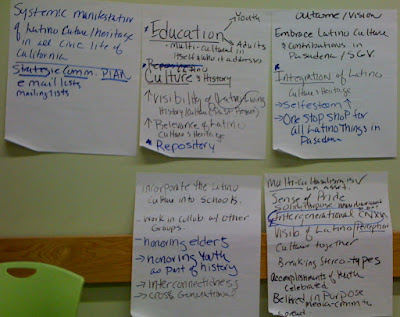 Systemic manifestation
of Latino Culture/Heritage
in all civic life of
California
Strategic Comm. Plan
email lists
mailing lists
Youth
* Education
Adults
- Multi-cultural in
itself who it addresses
Culture & History
↑ Visibility of Latino Living
History/Culture (Past & Present)
↑ Relevance of Latino
Culture & Heritage
* Repository
Outcome/Vision
Embrace Latino Culture
& Contributions in
Pasadena/SGV.
Integration of Latino
Culture & Heritage
→ Self esteem ↑
→ One stop shop for
all Latino Things in
Pasadena
incorporate the Latino
Culture into schools.
- Work in collab w/ other
Groups.
- honoring elders
→ honoring Youth
as part of history
→ interconnectedness
→ cross generational
Multi-culturalism is
an asset.
Sense of Pride
Intergenerational CNXN
Visib of Latino Perception
Culture together
Breaking Stereo-types
Accomplishments of Youth
celebrated
Belief in Purpose
media-commty